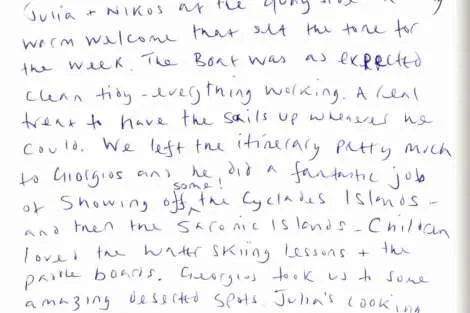 Julia + Nikos at the quay side
warm welcome that set the tone for
the week. The Boat was as expected
clean tidy - everything working. A real
treat to have the sails up whenever we
could. We left the itinerary pretty much
to Giorgios and he did a fantastic job
of showing off some! the Cyclades Islands -
and then the Saronic Islands - Children
loved the water skiing lessons + the
paddle boards. Georgios took us to some
amazing deserted spots. Julia's cooking